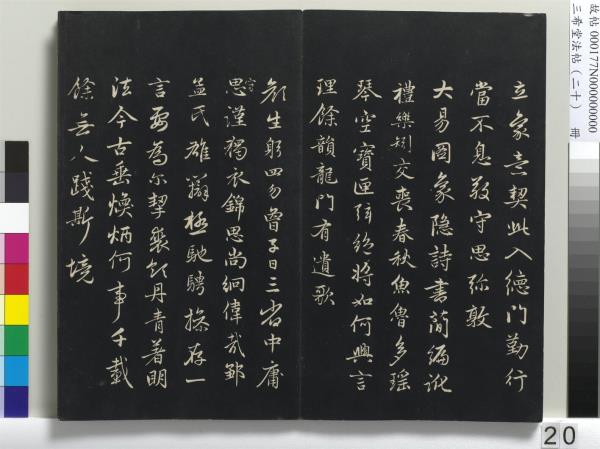 故帖 000177N000000000
三希堂法帖（二十） 冊
立象意契此入德門勤行
當不息敬守思彌敦
大易圖象隱詩書簡編訛
禮樂矧交喪春秋魚魯多瑤
琴空寶匣弦絕將如何興言
理餘韻龍門有遺歌
顏生躬四勿曾子日三省中庸
思謹獨衣錦思尚絅偉哉鄒
孟氏雄辯極馳騁操存一
言要為爾挈裘領丹青著明
法今古垂煥炳何事千載
餘無人踐斯境
20